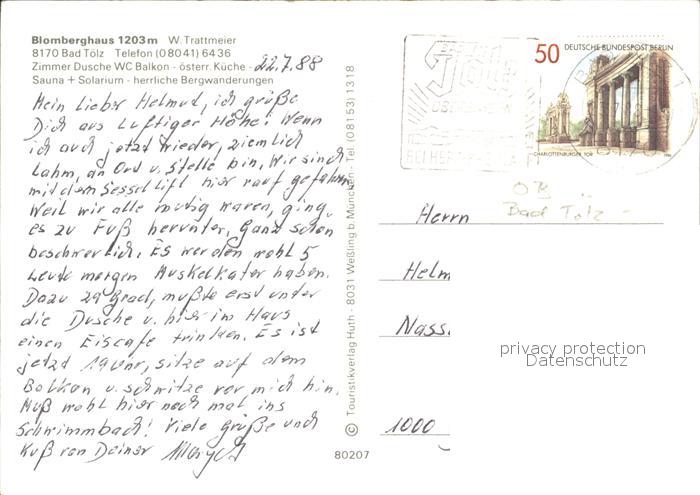 Blomberghaus 1203m W. Trattmeier
8170 Bad Tölz Telefon (08041) 6436
Zimmer Dusche WC Balkon - österr. Küche -
Sauna + Solarium - herrliche Bergwanderungen
22.7.88
Mein lieber Helmut, ich grüße
Dich aus luftiger Höhe! Wenn
ich auch jetzt wieder, ziemlich
lahm, an Ort u. Stelle bin. Wir sind
mit dem Sessellift hier rauf gefahren
Weil wir alle mutig waren, ging
es zu Fuß herunter. Ganz schön
beschwerlich. Es werden wohl 5
Leute morgen Muskelkater haben.
Dazu 29 Grad, mußte erst unter
die Dusche u. hier im Haus
einen Eiscafe trinken. Es ist
jetzt 19 Uhr, sitze auf dem
Balkon u. schwitze vor mich hin.
Muß wohl hier noch mal ins
Schwimmbach! Viele Grüße und
Kuß von Deiner
© Touristikverlag Huth - 8031 Weßling b. München - Tel. (08153) 1318
80207
50 DEUTSCHE BUNDESPOST BERLIN
CHARLOTTENBURGER TOR
Bad Tölz -
Herrn
Helm
Nass.
1000
privacy protection
Datenschutz